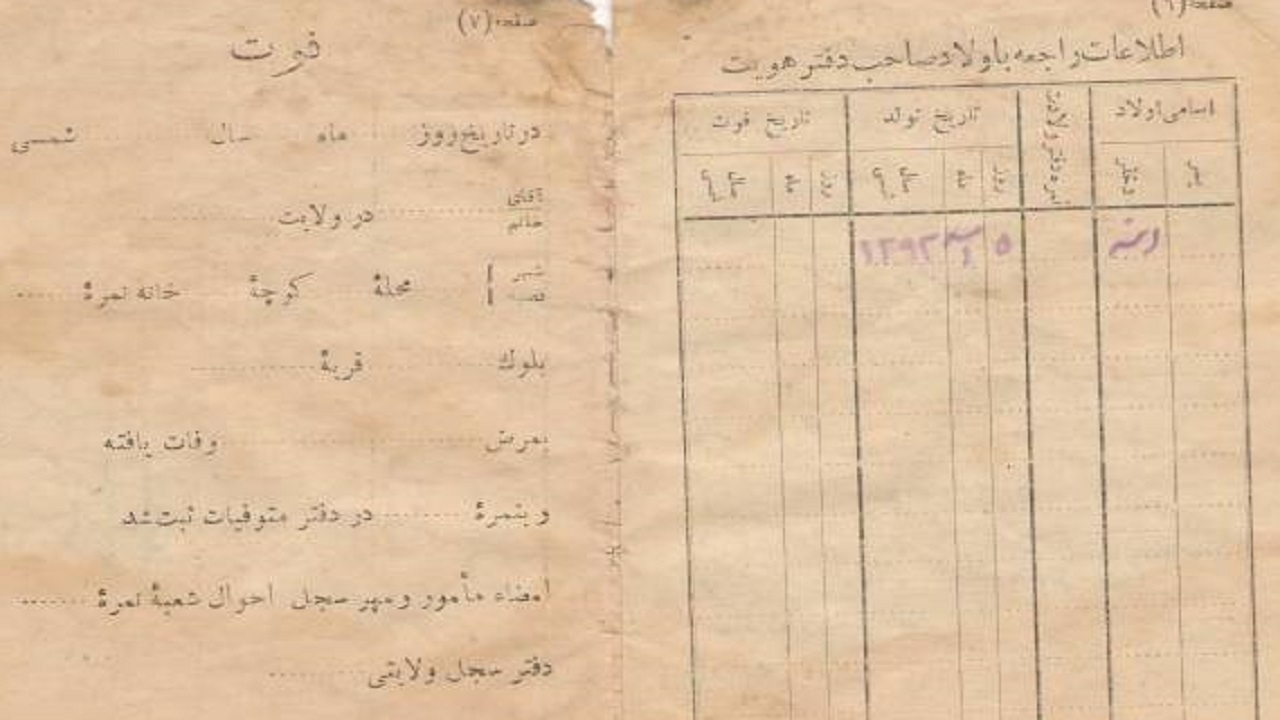 صفحه (٦)
اطلاعات راجعه باولاد صاحب دفتر هویت
اسامی اولاد
نمره دفتر ولادت
تاریخ تولد
تاریخ فوت
پسر
دختر
روز
ماه
سال شمسی
روز
ماه
سال شمسی
٥
١٢٩٢
صفحه (٧)
فوت
در تاریخ روز ماه سال شمسی
آقای
خانم
در ولایت
شهر
قصبه
محلهٔ کوچهٔ خانه نمرهٔ
بلوك قریهٔ
بمرض وفات یافته
و بنمرهٔ در دفتر متوفیات ثبت شد
امضاء مأمور و مهر سجل احوال شعبهٔ نمرهٔ
دفتر سجل ولایتی